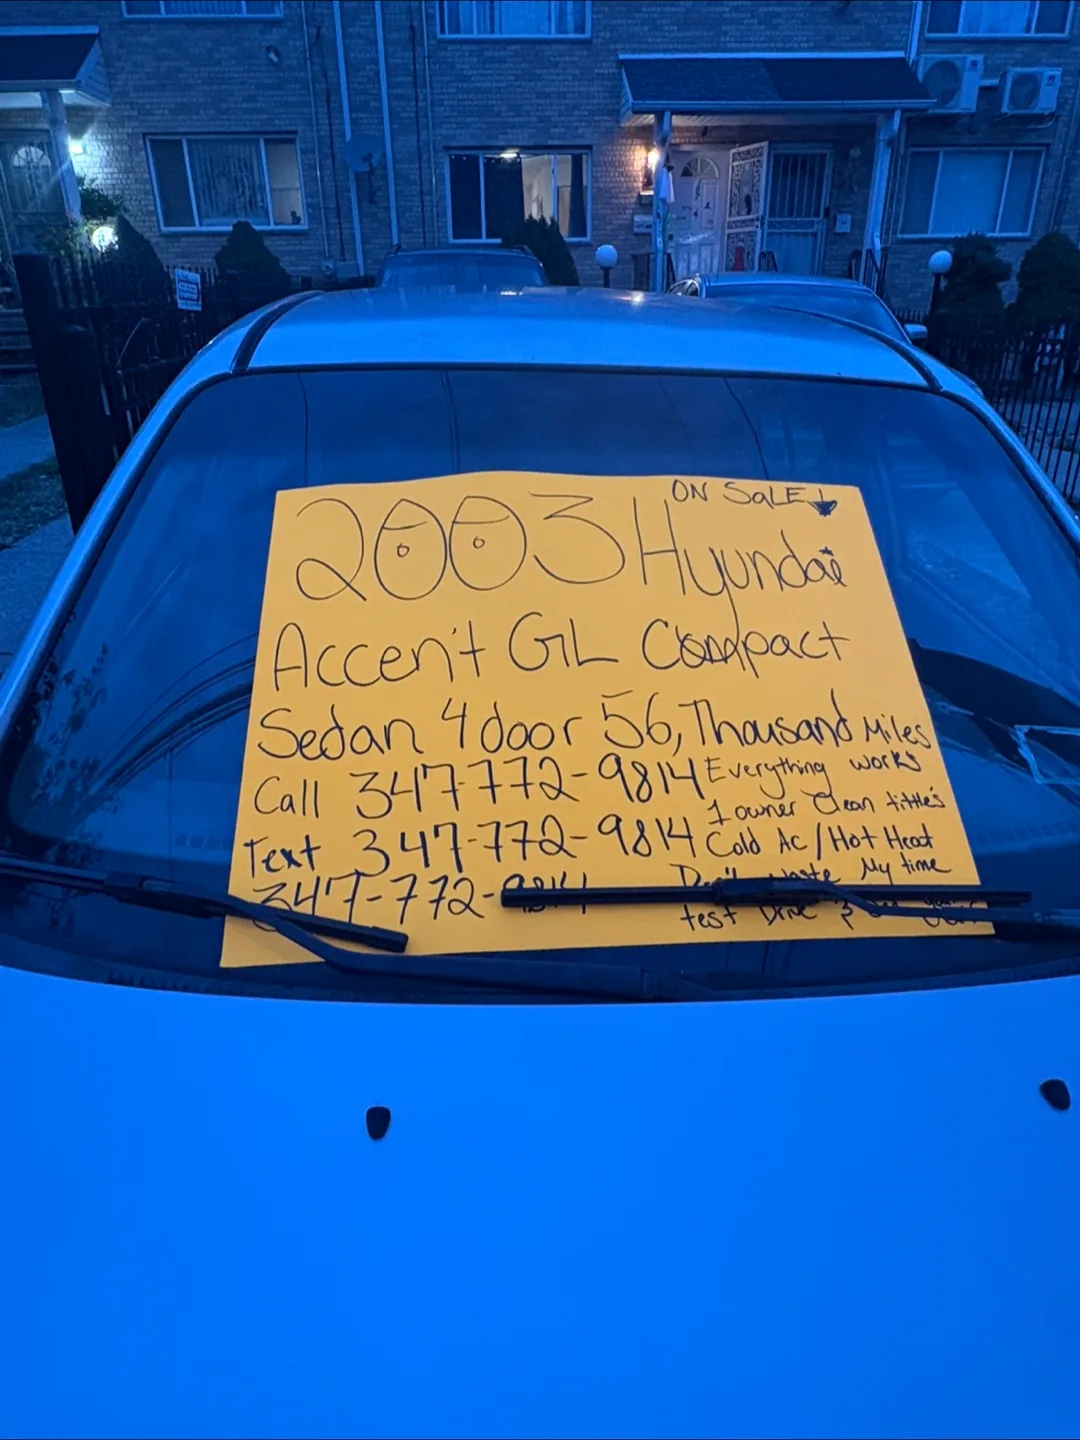 ON SaLE
2003 Hyundai
Accen't GL Compact
Sedan 4 door 56, Thousand Miles
Call 347-772-9814 Everything works
1 owner Clean tittle's
Text 347-772-9814 Cold Ac / Hot Heat
Don't waste My time
347-772-9814
test Drive &